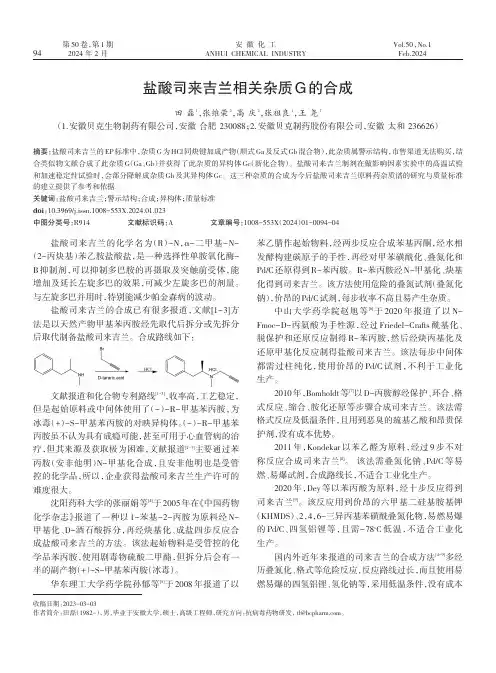 第50卷,第1期
2024年2月
94
安 徽 化 工
ANHUI CHEMICAL INDUSTRY
Vol.50,No.1
Feb.2024
盐酸司来吉兰相关杂质G的合成
田 磊¹,张维荣²,高 庆²,张祖良¹,王 尧¹
(1.安徽贝克生物制药有限公司,安徽 合肥 230088;2.安徽贝克制药股份有限公司,安徽 太和 236626)
摘要:盐酸司来吉兰的EP标准中,杂质G为HCl同炔键加成产物(顺式Ga及反式Gb混合物),此杂质属警示结构,市售渠道无法购买,结
合类似物文献合成了此杂质G(Ga、Gb)并获得了此杂质的异构体Gc(新化合物)。盐酸司来吉兰制剂在酸影响因素实验中的高温试验
和加速稳定性试验时,会部分降解成杂质Gb及其异构体Gc。这三种杂质的合成为今后盐酸司来吉兰原料药杂质谱的研究与质量标准
的建立提供了参考和依据。
关键词:盐酸司来吉兰;警示结构;合成;异构体;质量标准
doi:10.3969/j.issn.1008-553X.2024.01.023
中图分类号:R914 文献标识码:A 文章编号:1008-553X(2024)01-0094-04
盐酸司来吉兰的化学名为(R)-N,α-二甲基-N-
(2-丙炔基)苯乙胺盐酸盐,是一种选择性单胺氧化酶-
B抑制剂,可以抑制多巴胺的再摄取及突触前受体,能
增加及延长左旋多巴的效果,可减少左旋多巴的剂量。
与左旋多巴并用时,特别能减少帕金森病的波动。
盐酸司来吉兰的合成已有很多报道,文献[1-3]方
法是以天然产物甲基苯丙胺经先取代后拆分或先拆分
后取代制备盐酸司来吉兰。合成路线如下:
Br
NH
D-tartaric acid
HCl
HCl
N
文献报道和化合物专利路线[1-3],收率高,工艺稳定,
但是起始原料或中间体使用了(-)-R-甲基苯丙胺,为
冰毒(+)-S-甲基苯丙胺的对映异构体。(-)-R-甲基苯
丙胺虽不认为具有成瘾可能,甚至可用于心血管病的治
疗,但其来源及获取极为困难,文献报道[1-3]主要通过苯
丙胺(安非他明)N-甲基化合成,且安非他明也是受管
控的化学品,所以,企业获得盐酸司来吉兰生产许可的
难度很大。
沈阳药科大学的张丽娟等[4]于2005年在《中国药物
化学杂志》报道了一种以1-苯基-2-丙胺为原料经N-
甲基化、D-酒石酸拆分,再经炔基化、成盐四步反应合
成盐酸司来吉兰的方法。该法起始物料是受管控的化
学品苯丙胺,使用剧毒物硫酸二甲酯,但拆分后会有一
半的副产物(+)-S-甲基苯丙胺(冰毒)。
华东理工大学药学院孙郁等[5]于2008年报道了以
苯乙腈作起始物料,经两步反应合成苯基丙酮,经水相
发酵构建砜原子的手性,再经对甲苯磺酰化、叠氮化和
Pd/C还原得到R-苯丙胺。R-苯丙胺经N-甲基化、炔基
化得到司来吉兰。该方法使用危险的叠氮试剂(叠氮化
钠)、价昂的Pd/C试剂,每步收率不高且易产生杂质。
中山大学药学院赵旭等[6]于2020年报道了以N-
Fmoc-D-丙氨酸为手性源,经过Friedel-Crafts酰基化、
脱保护和还原反应制得R-苯丙胺,然后经炔丙基化及
还原甲基化反应制得盐酸司来吉兰。该法每步中间体
都需过柱纯化,使用价昂的Pd/C试剂,不利于工业化
生产。
2010年,Bornholdt等[7]以D-丙胺醇经保护、环合、格
式反应、缩合、胺化还原等步骤合成司来吉兰。该法需
格式反应及低温条件,且用到恶臭的巯基乙酸和昂贵保
护剂,没有成本优势。
2011年,Kondekar以苯乙醛为原料,经过9步不对
称反应合成司来吉兰[8]。 该法需叠氮化钠、Pd/C等易
燃、易爆试剂,合成路线长,不适合工业化生产。
2020年,Dey等以苯丙酸为原料,经十步反应得到
司来吉兰[9]。该反应用到价昂的六甲基二硅基胺基钾
(KHMDS)、2,4,6-三异丙基苯磺酰叠氮化物,易燃易爆
的Pd/C、四氢铝锂等,且需-78℃低温,不适合工业化
生产。
国内外近年来报道的司来吉兰的合成方法[3-9]多经
历叠氮化、格式等危险反应,反应路线过长,而且使用易
燃易爆的四氢铝锂、氢化钠等,采用低温条件,没有成本
收稿日期:2023-03-03
作者简介:田磊(1982-),男,毕业于安徽大学,硕士,高级工程师,研究方向:抗病毒药物研发